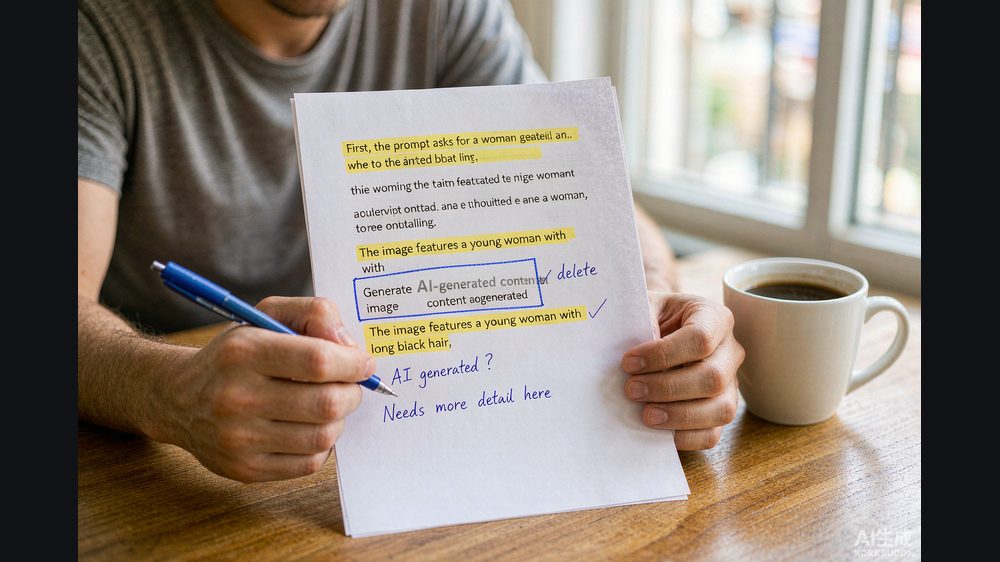 First, the prompt asks for a woman geateiil an..
whe to the ánted bbat ling,
thie woming the taim feattated te nige womant
aoulervipt onttad. ane e thouitted e ane a woman,
toree onbtalling.
The image features a young woman with
with
Generate AI-generated content
image content aogenerated
✓ delete
The image features a young woman with ✓
long black hair,
AI generated ?
Needs more detail here
AI生成
WORKBUDDY